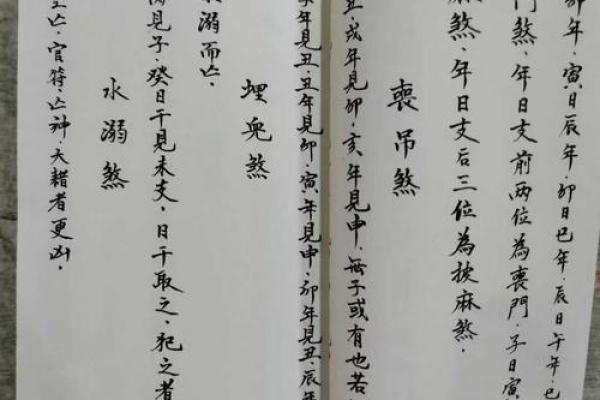 卯年,寅日辰年,卯日巳年,辰日午年,巳
门煞,年日支前两位為喪門,子日寅
麻煞,年日支后三位為披麻煞,
喪吊煞
丑,戌年見卯,亥年見申,無子或有也若
年見丑,丑年見卯,寅年見申,卯年見丑,辰年
埋兒煞
溺而亡,
見子,癸日干見未支,日干取之,犯之者
水溺煞
亡,官符,亡神,大耗者更凶,